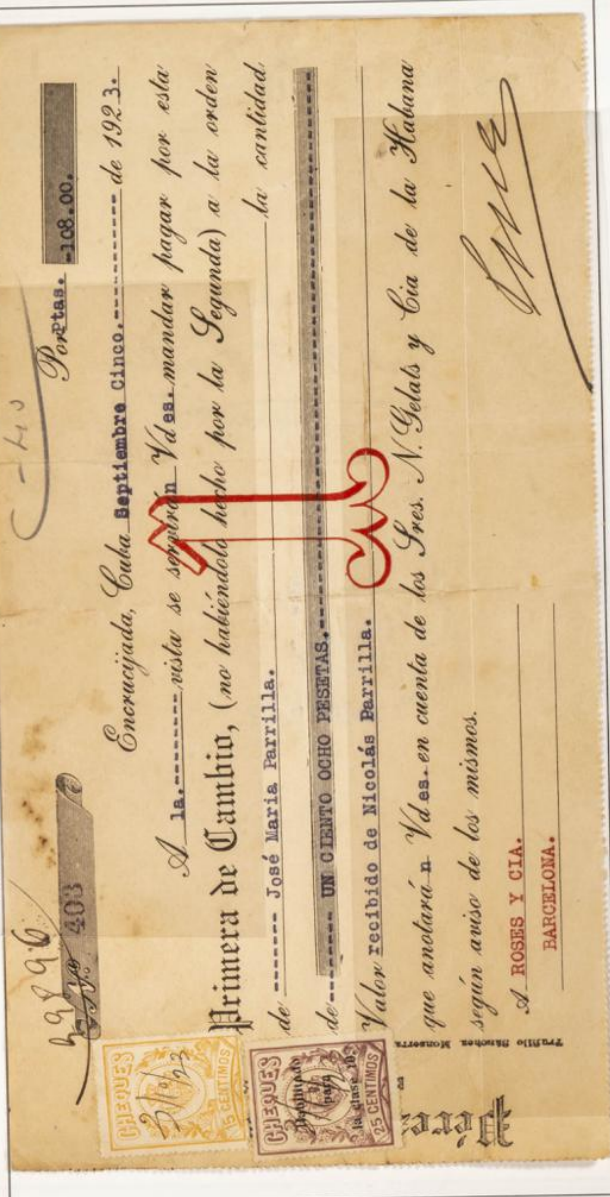 39896
No. 403
Por Ptas. -108.00.
Encrucijada, Cuba Septiembre Cinco.---------- de 1923.
A la.--------- vista se servirán Vdes. mandar pagar por esta
Primera de Cambio, (no habiéndolo hecho por la Segunda) a la orden
de ------- José Maria Parrilla. la cantidad
de ------- UN CIENTO OCHO PESETAS.-----------
Valor recibido de Nicolás Parrilla.
que anotarán Vdes. en cuenta de los Sres. N. Gelats y Cia de la Habana
según aviso de los mismos.
A ROSES Y CIA.
BARCELONA.
CHEQUES
3/10/23
15 CENTIMOS
CHEQUES
Habilitado
para
la clase 10ª
25 CENTIMOS
Trujillo Sánchez Monserra
Pére